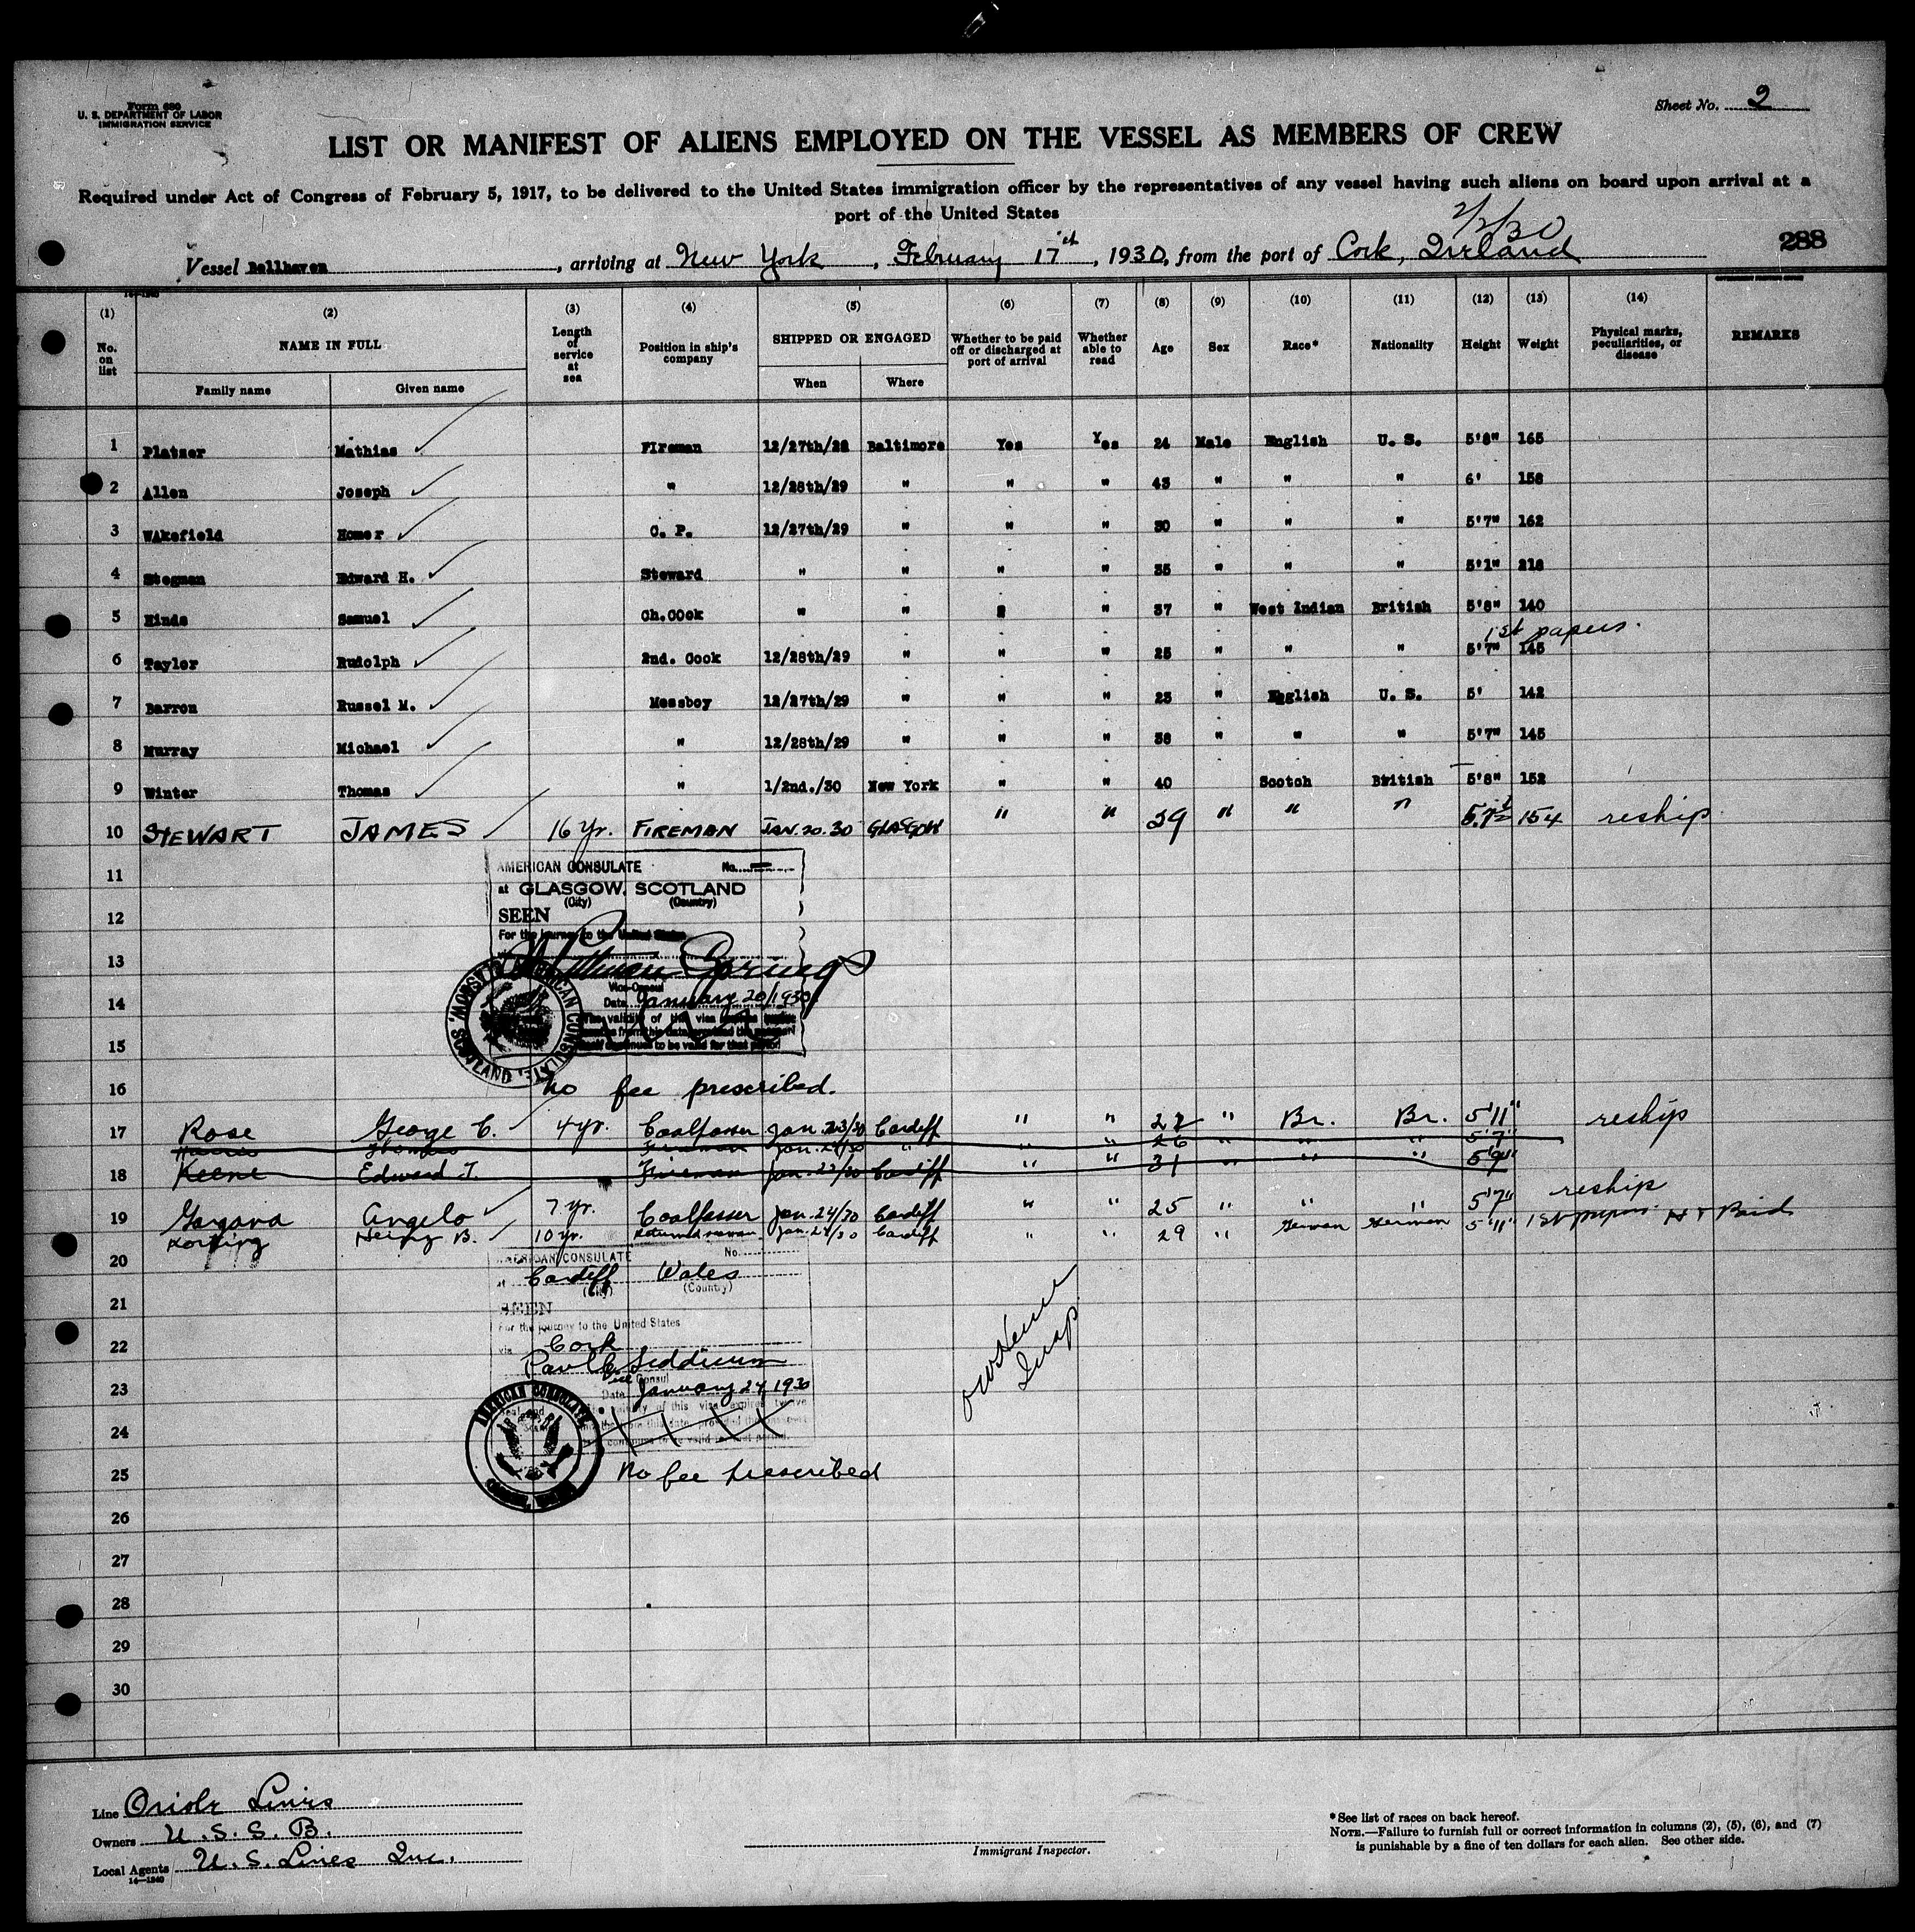 Form 680
U. S. DEPARTMENT OF LABOR
IMMIGRATION SERVICE
Sheet No. 2
LIST OR MANIFEST OF ALIENS EMPLOYED ON THE VESSEL AS MEMBERS OF CREW
Required under Act of Congress of February 5, 1917, to be delivered to the United States immigration officer by the representatives of any vessel having such aliens on board upon arrival at a
port of the United States
2/2/30
288
Vessel Bellhaven, arriving at New York, February 17th, 1930, from the port of Cork, Ireland
(1) (2) (3) (4) (5) (6) (7) (8) (9) (10) (11) (12) (13) (14)
No. on list NAME IN FULL Length of service at sea Position in ship's company SHIPPED OR ENGAGED Whether to be paid off or discharged at port of arrival Whether able to read Age Sex Race* Nationality Height Weight Physical marks, peculiarities, or disease REMARKS
Family name Given name When Where
1 Platzer Mathias FIreman 12/27th/28 Baltimore Yes Yes 24 Male English U. S. 5'8" 165
2 Allen Joseph " 12/28th/29 " " " 43 " " " 6' 158
3 WAkefield Homer C. P. 12/27th/29 " " " 30 " " " 5'7" 162
4 Stegman Edward H. Steward " " " " 35 " " " 5'1" 218
5 Hinds Samuel Ch.COok " " " 37 " West Indian British 5'8" 140
1st papers.
6 Taylor Rudolph 2nd. Cook 12/28th/29 " " " 25 " " " 5'7" 145
7 Barron Russel M. Messboy 12/27th/29 " " " 23 " English U. S. 5' 142
8 Murray Michael " 12/28th/29 " " " 38 " " " 5'7" 145
9 Winter Thomas " 1/2nd./30 New York " " 40 Scotch British 5'8" 152
10 STEWART JAMES 16 Yr. FIREMAN JAN.20.30 GLASGOW " " 39 " " " 5.7½ 154 reship
11
AMERICAN CONSULATE No.
at GLASGOW, SCOTLAND
(City) (Country)
12
SEEN
For the journey to the United States
13
Vice-Consul
14
Date January 20/1930
The validity of the visa
15
AMERICAN CONSULATE, GLASGOW, SCOTLAND
16
No fee prescribed.
17 Rose George C. 4 yr. Coalpasser Jan. 23/30 Cardiff " " 22 " Br. Br. 5'11" reship
Harris Thomas Fireman Jan. 24/30 " " " 26 " " " 5'7"
18 Keene Edward J. Fireman Jan. 23/30 Cardiff " " 31 " " " 5'9"
reship
19 Angelo 7 yr. Coalpasser Jan. 24/30 Cardiff " " 25 " " " 5'7"
Heinz B. 10 yr. Returned seaman Jan. 24/30 Cardiff " " 29 " German German 5'11" 1st papers Paid
20
AMERICAN CONSULATE No.
at Cardiff Wales
(City) (Country)
21
SEEN
For the journey to the United States
22
via Cork
Vice Consul
23
Date January 24 1930
AMERICAN CONSULATE
24
25
No fee prescribed
26
27
28
29
30
Line Oriole Lines
Owners U. S. S. B.
Local Agents U. S. Lines Inc.
14—1240
Immigrant Inspector.
*See list of races on back hereof.
NOTE.—Failure to furnish full or correct information in columns (2), (5), (6), and (7)
is punishable by a fine of ten dollars for each alien. See other side.